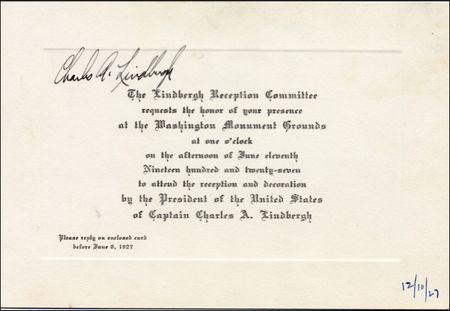 Charles A. Lindbergh
The Lindbergh Reception Committee
requests the honor of your presence
at the Washington Monument Grounds
at one o'clock
on the afternoon of June eleventh
Nineteen hundred and twenty-seven
to attend the reception and decoration
by the President of the United States
of Captain Charles A. Lindbergh
Please reply on enclosed card
before June 8, 1927
12/10/27